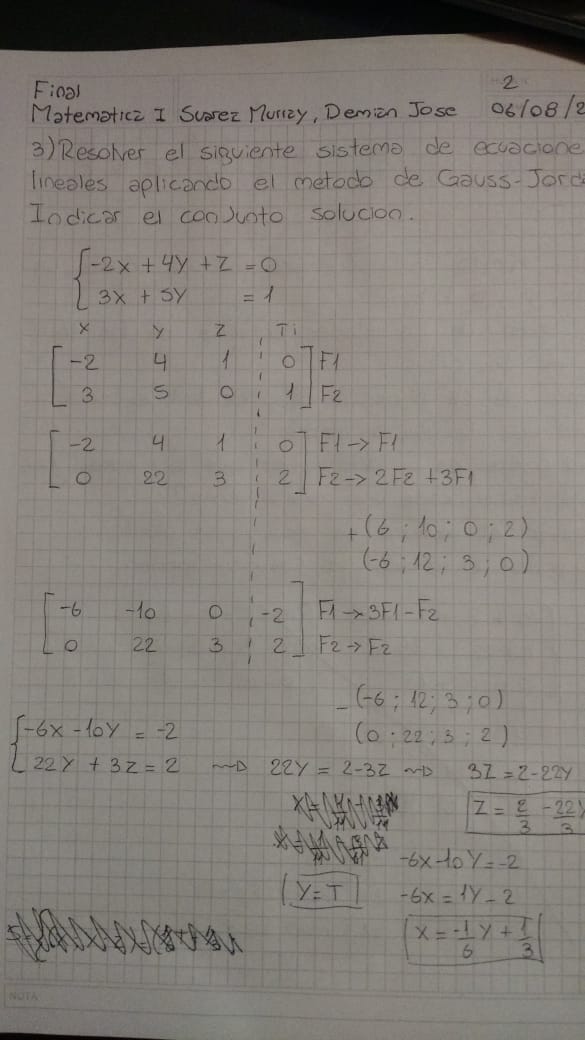 2
Final
Matematica I Suarez Murray, Demian Jose 06/08/2
3) Resolver el siguiente sistema de ecuacione
lineales aplicando el metodo de Gauss-Jord
Indicar el conjunto solucion.
{ -2x + 4y + z = 0
{ 3x + 5y = 1
x y z Ti
[ -2 4 1 | 0 ] F1
[ 3 5 0 | 1 ] F2
[ -2 4 1 | 0 ] F1 -> F1
[ 0 22 3 | 2 ] F2 -> 2F2 + 3F1
+ (6 ; 10 ; 0 ; 2)
(-6 ; 12 ; 3 ; 0)
[ -6 -10 0 | -2 ] F1 -> 3F1 - F2
[ 0 22 3 | 2 ] F2 -> F2
- (-6 ; 12 ; 3 ; 0)
(0 ; 22 ; 3 ; 2)
{ -6x - 10y = -2
{ 22y + 3z = 2 ~> 22y = 2-3z ~> 3z = 2-22y
z = 2/3 - 22/3 y
-6x-10y = -2
y = T
-6x = 1y - 2
x = -1/6 y + 1/3
NOTA